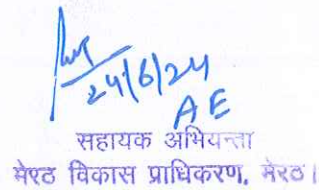 24/6/24
AE
सहायक अभियन्ता
मेरठ विकास प्राधिकरण, मेरठ।